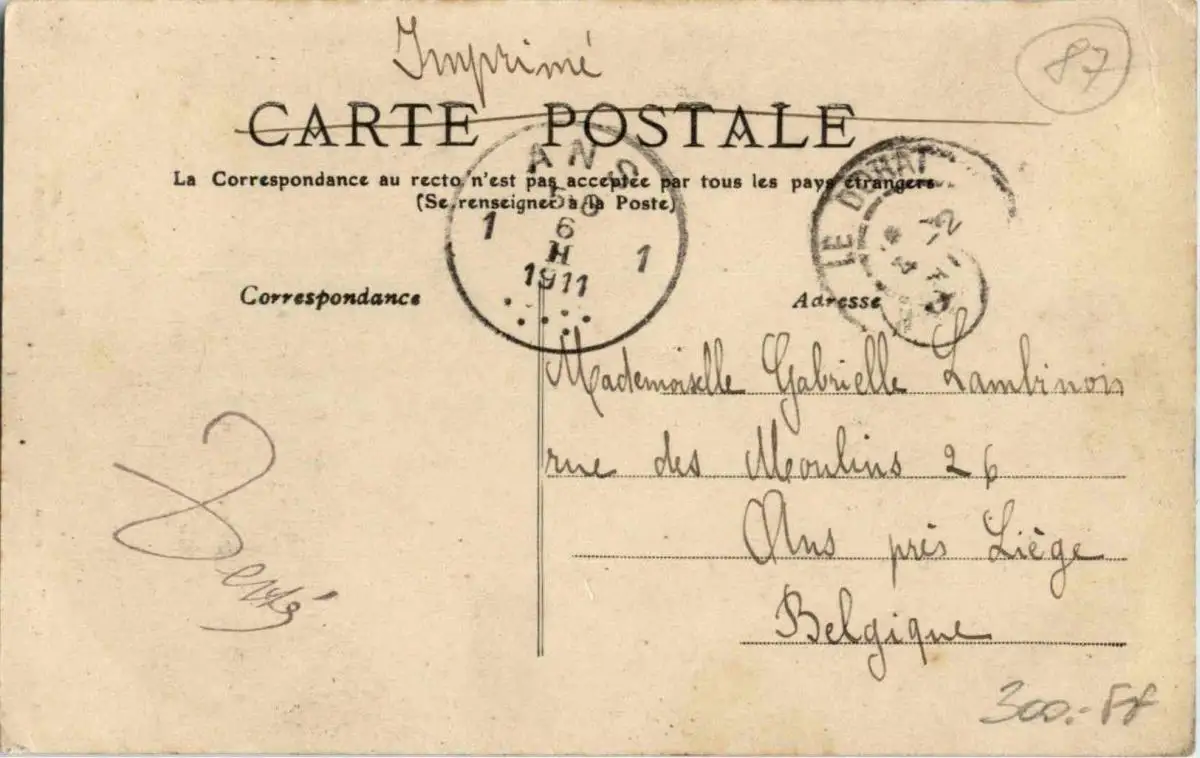 Imprimé
87
CARTE POSTALE
La Correspondance au recto n'est pas acceptée par tous les pays étrangers
(Se renseigner à la Poste)
ANS
6
1 1
1911
LE DORAT
Correspondance
Adresse
Mademoiselle Gabrielle Lambinois
rue des Moulins 26
Ans près Liège
Belgique
300.-